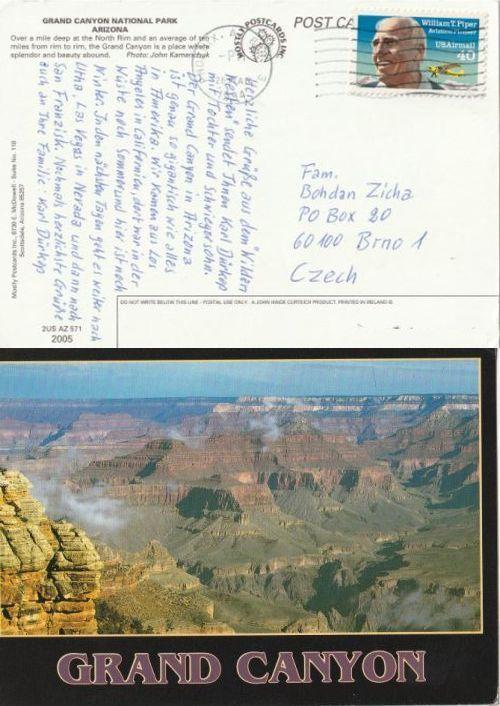 GRAND CANYON NATIONAL PARK
ARIZONA
Over a mile deep at the North Rim and an average of ten
miles from rim to rim, the Grand Canyon is a place where
splendor and beauty abound. Photo: John Kamenchuk
POST CA
MOSTLY POSTCARDS INC
William T. Piper
Aviation Pioneer
USAirmail
40
Herzliche Grüße aus dem "Wilden
Westen" sendet Ihnen Karl Dürkop
mit Tochter und Schwiegersohn.
Der Grand Canyon in Arizona
ist genau so gigantisch wie alles
in Amerika. Wir kamen aus Los
Angeles in Californien, dort war in der
Wüste noch Sommer und hier ist noch
Winter. In den nächsten Tagen geht es weiter nach
Utha, Las Vegas in Nevada und dann nach
San Franzisk. Nochmals herzlichste Grüße
auch an Ihre Familie. Karl Dürkop
Fam.
Bohdan Zicha
PO Box 20
60100 Brno 1
Czech
Mostly Postcards Inc., 8730 E. McDowell - Suite No. 110
Scottsdale, Arizona 85257
DO NOT WRITE BELOW THIS LINE - POSTAL USE ONLY. A JOHN HINDE CURTEICH PRODUCT. PRINTED IN IRELAND ©
2US AZ 571
2005
GRAND CANYON